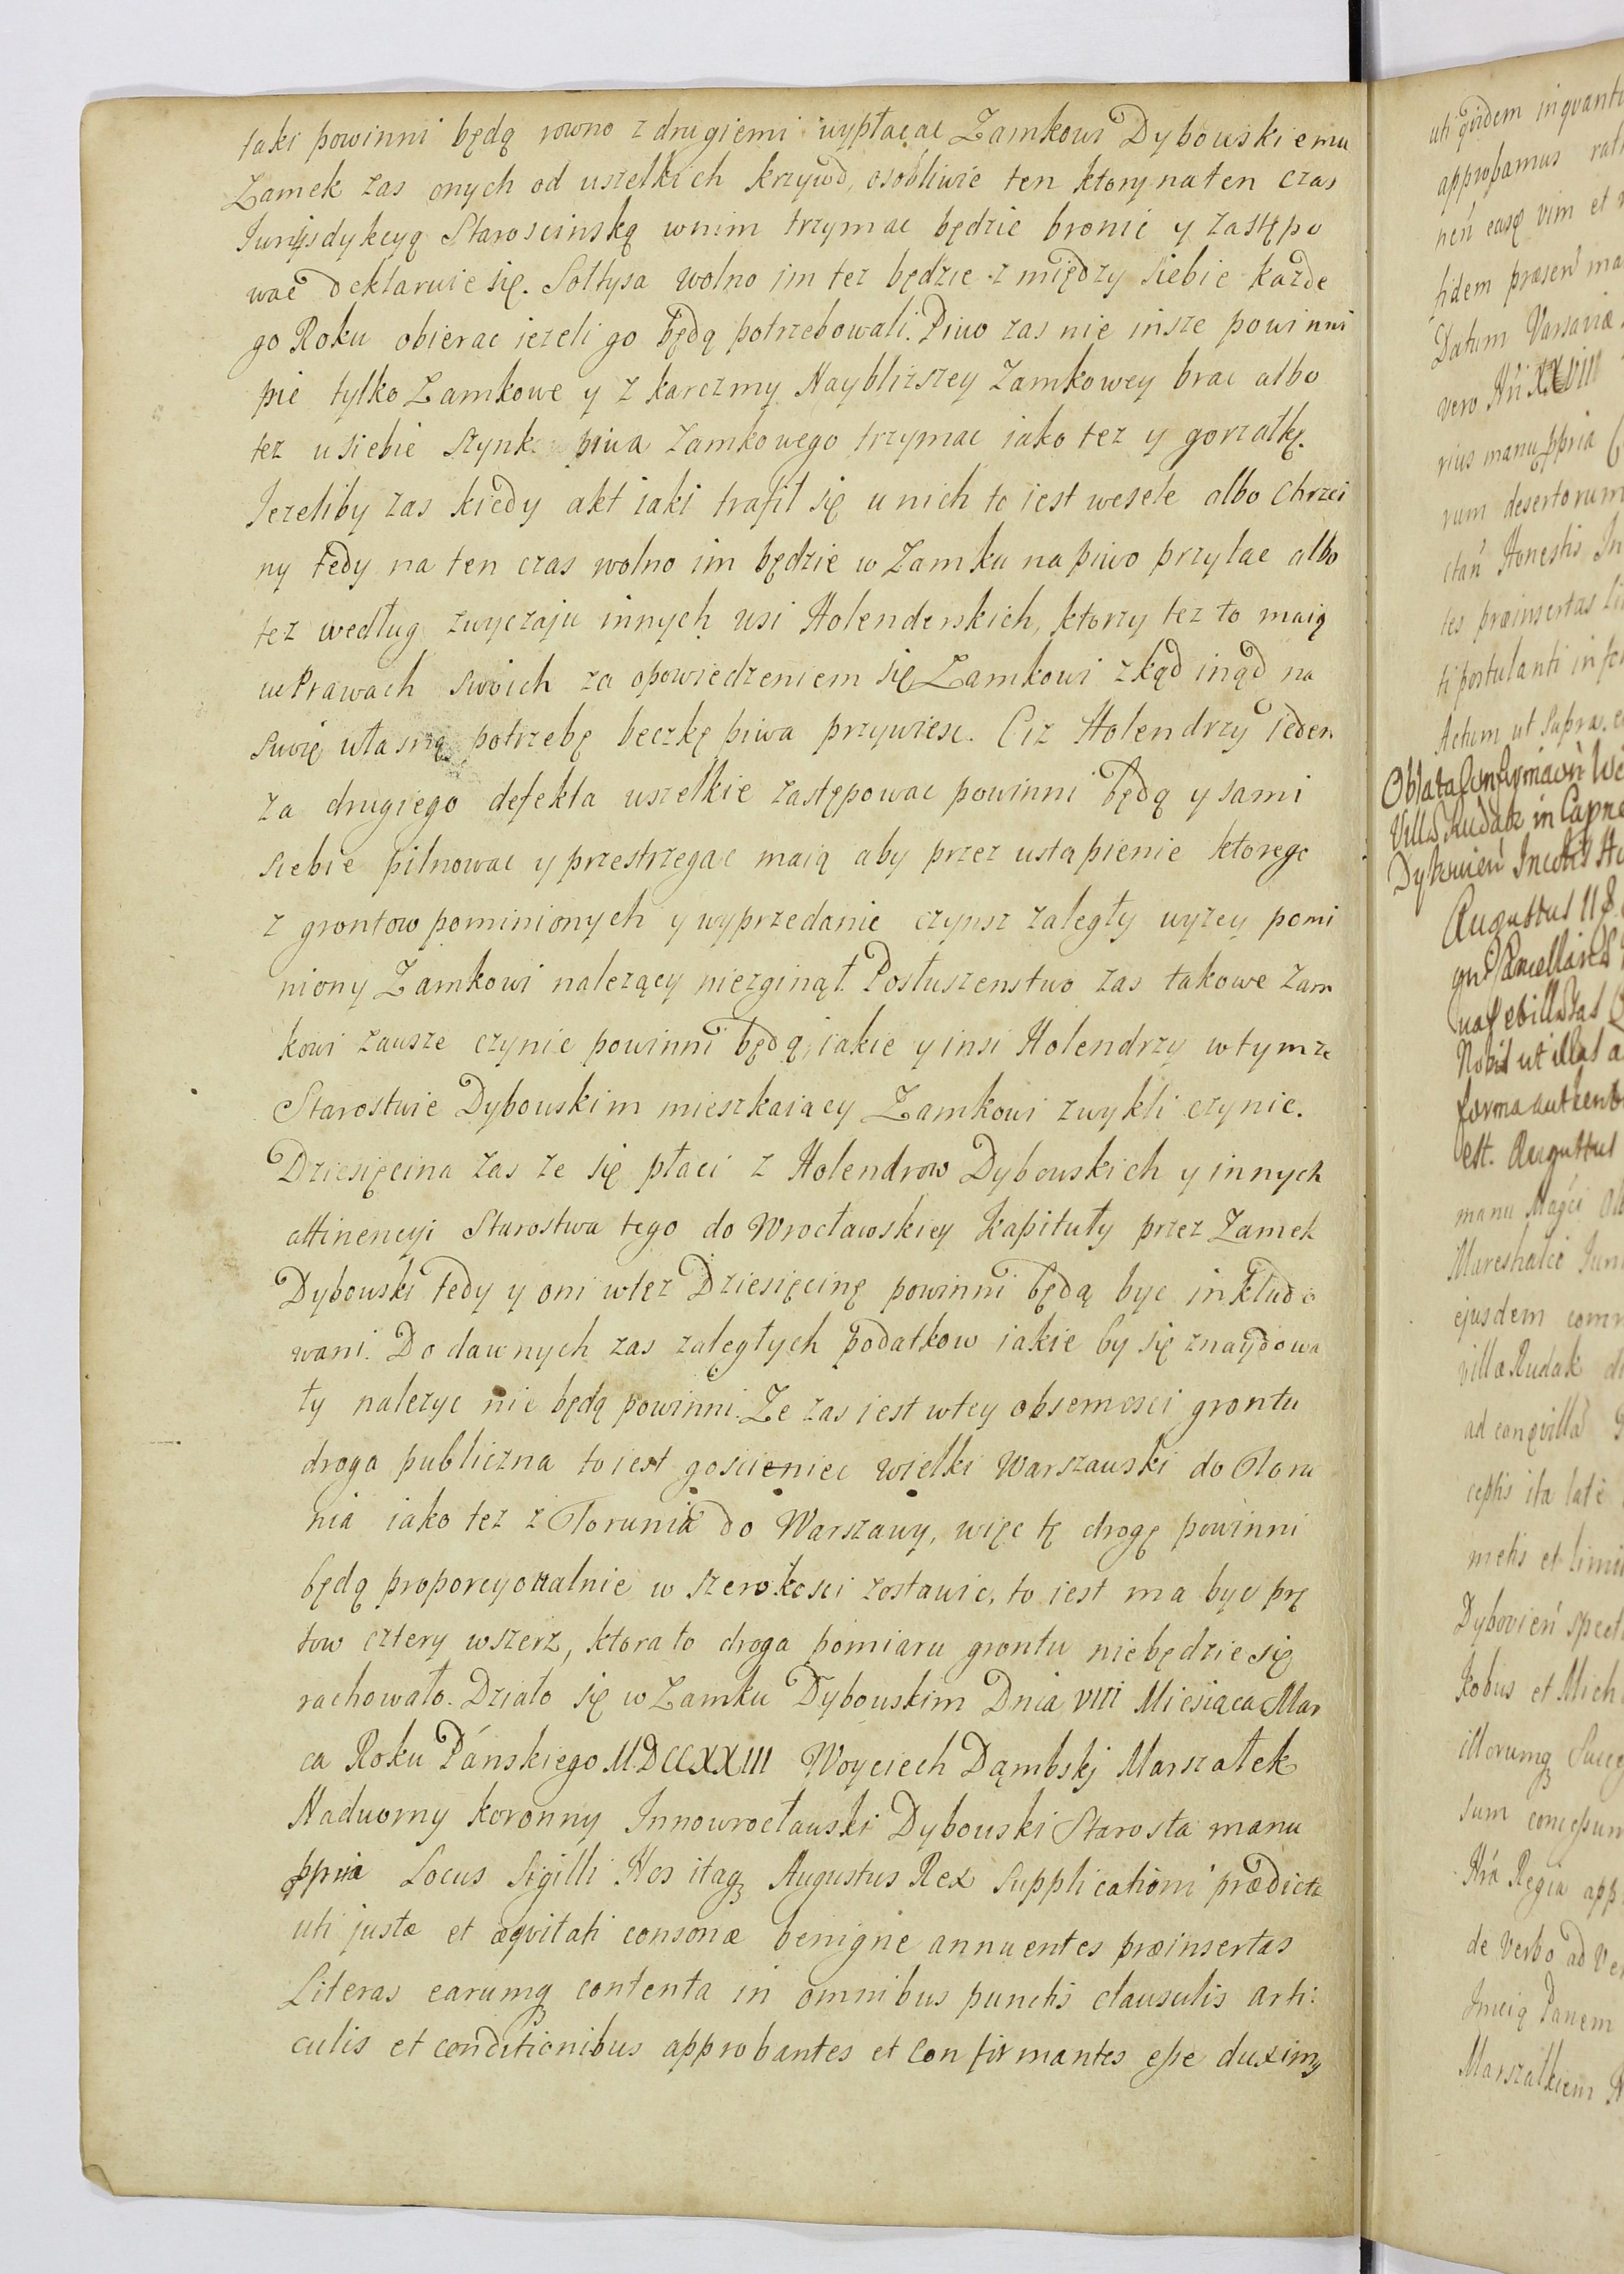 taki powinni będą rowno z drugiemi wypłacac Zamkowi Dybowskiemu
Zamek zas onych od wszelkich krzywd, osobliwie ten ktory na ten czas
Jurysdykcyą Staroscinską w nim trzymac będzie bronic y zastępo
wac deklaruie się. Sołtysa wolno im tez będzie z między siebie kazde
go Roku obierac iezeli go będą potrzebowali. Piwo zas nie insze powinni
pic tylko Zamkowe y z karczmy Nayblizszey Zamkowey brac albo
tez u siebie szynk piwa Zamkowego trzymac iako tez y gorzałkę.
Jezeliby zas kiedy akt iaki trafił się u nich to iest wesele albo Chrzci
ny tedy na ten czas wolno im będzie w Zamku na piwo przyłac albo
tez według zwyczaju innych wsi Holenderskich, ktorzy tez to maią
w Prawach swoich za opowiedzeniem się Zamkowi zkąd inąd na
swoię własną potrzebę beczkę piwa przywiesc. Ciz Holendrzy ieden
za drugiego defekta wszelkie zastępowac powinni będą y sami
siebie pilnowac y przestrzegac maią aby przez ustąpienie ktorego
z grontow pominionych y wyprzedanie czynsz zaległy wyzey pomi
niony Zamkowi nalezący niezginął. Posłuszenstwo zas takowe Zam
kowi zawsze czynic powinni będą, iakie y insi Holendrzy w tymze
Starostwie Dybowskim mieszkaiący Zamkowi zwykli czynic.
Dziesięcina zas ze się płaci z Holendrow Dybowskich y innych
attinencyi Starostwa tego do Wrocławskiey Kapituły przez Zamek
Dybowski tedy y oni w tęz Dziesięcinę powinni będą byc inkludo
wani. Do dawnych zas zaległych podatkow iakie by się znaydowa
ły nalezyc nie będą powinni. Ze zas iest w tey obszernosci grontu
droga publiczna to iest gosciniec wielki Warszawski do Toru
nia iako tez z Torunia do Warszawy, więc tę drogę powinni
będą proporcyonalnie w szerokosci zostawic, to iest ma byc prę
tow cztery wszerz, ktora to droga pomiaru grontu niebędzie się
rachowało. Działo się w Zamku Dybowskim Dnia VIII Miesiąca Mar
ca Roku Pánskiego MDCCXXIII Woyciech Dąmbskj Marszałek
Nadworny koronny Innowrocławski Dybowski Starosta manu
ppria Locus Sigilli Nos itaq Augustus Rex Supplicationi prædictæ
uti justæ et æqvitati consonæ benigne annuentes præinsertas
Literas earumq contenta in omnibus punctis clausulis arti:
culis et conditionibus approbantes et confirmantes eße duximq
uti qvidem inqvant
approbamus
vim et
fidem præsen
Datum Varsaviæ
vero XXVIII
rius manu ppria
rum desertorum
Honestis
tes præinsertas
ti postulanti in
Actum ut supra.
Oblata Confirmaoñ
Villæ Rudak in Capne
Augustus II
Nobis ut illas a
forma authent
est. Augustus
manu
Mareshalci
ejusdem
villæ Rudak
ad eanqvillã
ceptis ita late
metis et limi
Dybovień
Kobus et Mich
illorumq Succ
sum
Nrã Regia app
de verbo ad ver
Panem
Marszałkiem